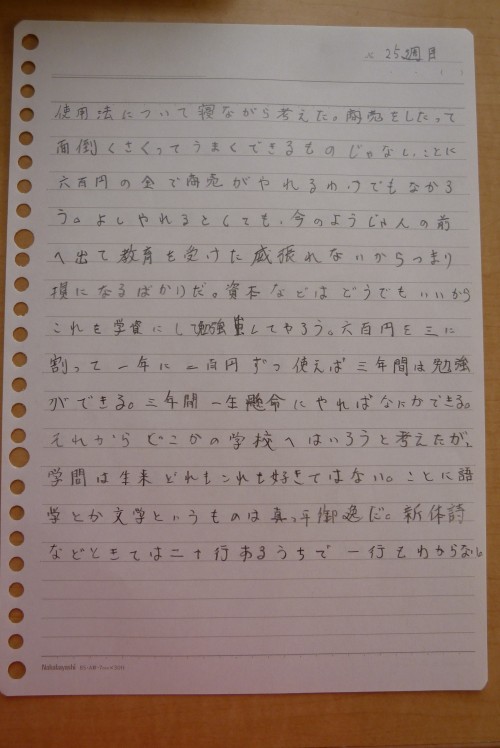 × 25週目
使用法について寝ながら考えた。商売をしたって
面倒くさくってうまくできるものじゃなし、ことに
六百円の金で商売がやれるわけでもなかろ
う。よしやれるとしても、今のようじゃ人の前
へ出て教育を受けた威張れないからつまり
損になるばかりだ。資本などはどうでもいいから
これを学資にして勉強してやろう。六百円を三に
割って一年に二百円ずつ使えば三年間は勉強
ができる。三年間一生懸命にやればなにかできる。
それからどこかの学校へはいろうと考えたが、
学問は生来どれもこれも好きではない。ことに語
学とか文学というものは真っ平御免だ。新体詩
などときては二十行あるうちで一行もわからない。
Nakabayashi